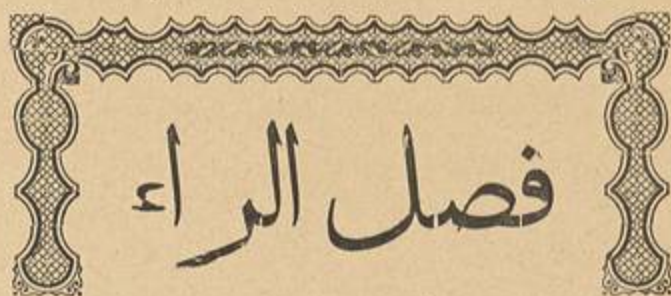 فصل الراء